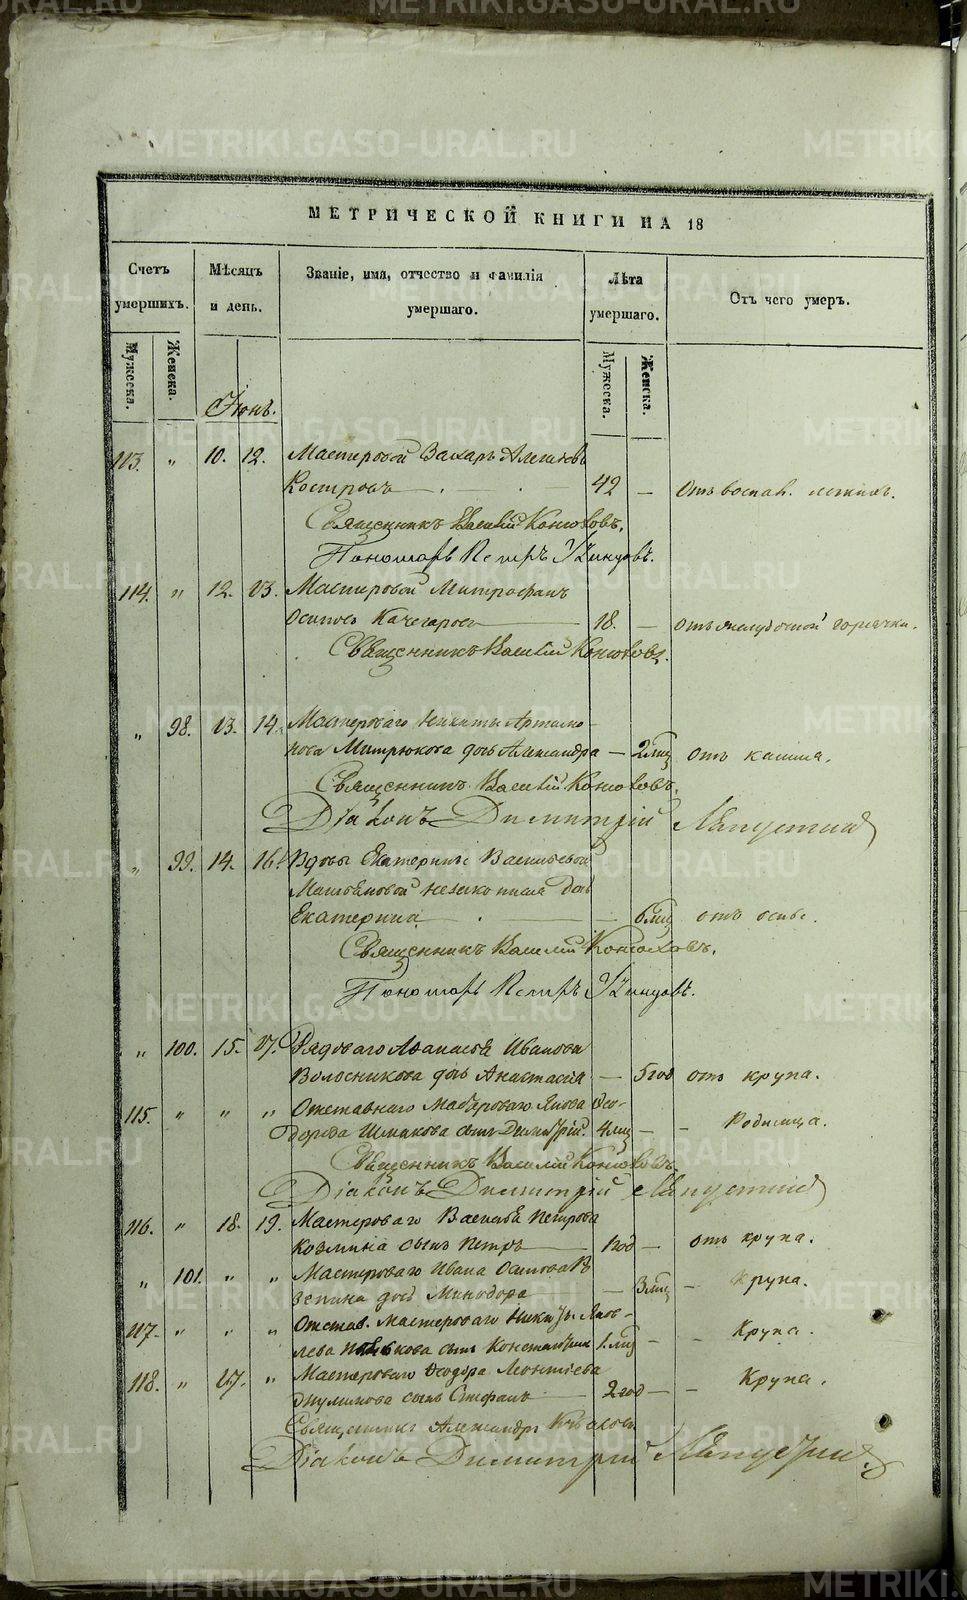 МЕТРИЧЕСКОЙ КНИГИ НА 18
Счетъ умершихъ. Мѣсяцъ и день. Званіе, имя, отчество и фамилія умершаго. Лѣта умершаго. Отъ чего умеръ.
Мужеска. Женска. Мужеска. Женска.
Іюнь.
113. " 10. 12. Мастеровой Захаръ
Костровъ 42 — Отъ воспал. легкихъ.
Священникъ Василій Конюховъ.
Пономарь Петръ
114. " 12. 13. Мастеровой Митрофанъ
Осиповъ Качегаровъ 18. — отъ желудочной горячки.
Священникъ Василій Конюховъ.
" 98. 13. 14. Мастероваго Никиты Артамо-
нова Митрюкова дочь Александра — 2 мѣс отъ кашля.
Священникъ Василій Конюховъ.
Діаконъ Димитрій
" 99. 14. 16. Вдовы Екатерины Васильевой
незаконная дочь
Екатерина — 6 мѣс отъ оспы.
Священникъ Василій Конюховъ.
Пономарь Петръ
" 100. 15. 17. Рядоваго Аѳанасья Иванова
Волосникова дочь Анастасія — 5 год отъ крупа.
115. " " " Отставнаго Мастероваго Якова Ѳео-
дорова сынъ Димитрій. 4 мѣс — Родимца.
Священникъ Василій Конюховъ.
Діаконъ Димитрій
116. " 18. 19. Мастероваго Василья Петрова
Козмина сынъ Петръ 1 год — отъ крупа.
" 101. " " Мастероваго Ивана Осипова
дочь Минодора — 3 мѣс — Крупа.
117. " " " Отстав. мастероваго Никиты Яков-
лева сынъ Константинъ 1 мѣс — Крупа.
118. " 17. " Мастероваго Ѳеодора Леонтьева
сынъ Стефанъ 2 год — Крупа.
Священникъ Александръ
Діаконъ Димитрій
METRIKI.GASO-URAL.RU